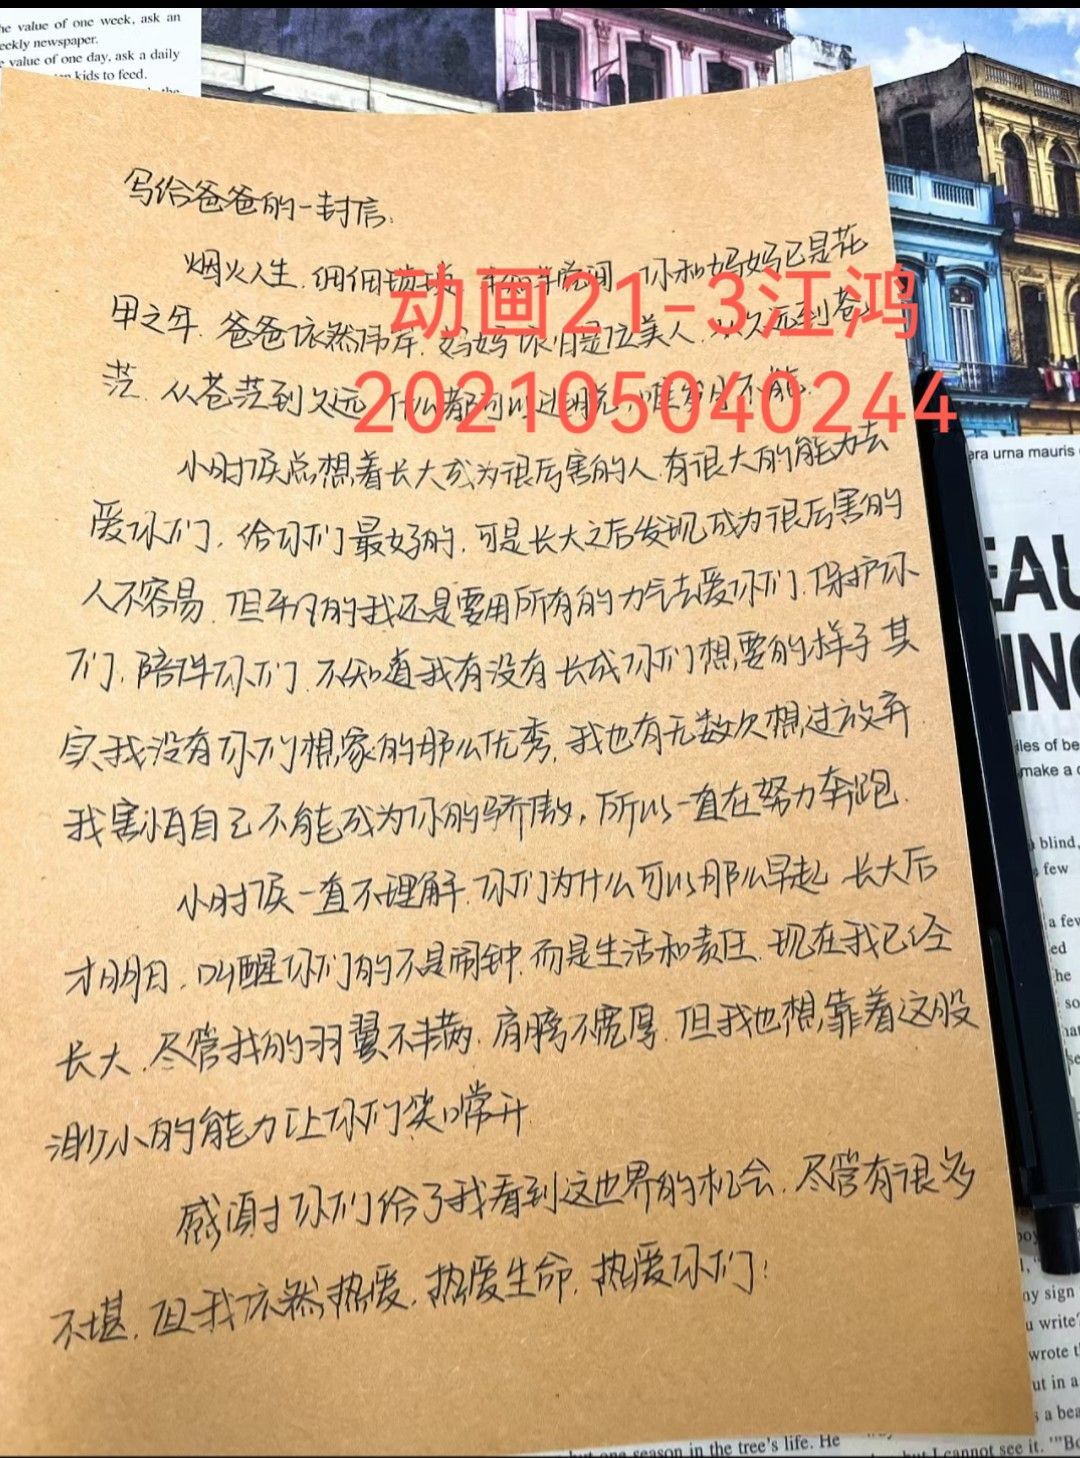 he value of one week, ask an
eekly newspaper.
e value of one day, ask a daily
kids to feed.
写给爸爸的一封信.
烟火人生.
动画21-3江鸿
你和妈妈已是花
甲之年.爸爸依然伟岸.妈妈依旧是位美人.从久远到苍
202105040244
茫.从苍茫到久远.什么都可以逃脱,唯岁月不能.
小时候总想着长大成为很厉害的人.有很大的能力去
爱你们.给你们最好的.可是长大之后发现成为很厉害的
人不容易.但平凡的我还是要用所有的力气去爱你们.保护你
们.陪伴你们.不知道我有没有长成你们想要的样子其
实我没有你们想象的那么优秀.我也有无数次想过放弃.
我害怕自己不能成为你的骄傲,所以一直在努力奔跑.
小时候一直不理解.你们为什么可以那么早起.长大后
才明白.叫醒你们的不是闹钟.而是生活和责任.现在我已经
长大.尽管我的羽翼不丰满.肩膀不宽厚.但我也想靠着这股
渺小的能力让你们笑口常开
感谢你们给了我看到这世界的机会.尽管有很多
不堪.但我依然热爱.热爱生命.热爱你们!
era urna mauris
EAU
ING
iles of be
make a
blind,
few
a few
ed
he
so
my sign
u write?
wrote t
ut in a
a bea
one season in the tree's life. He
but I cannot see it. '"Bo